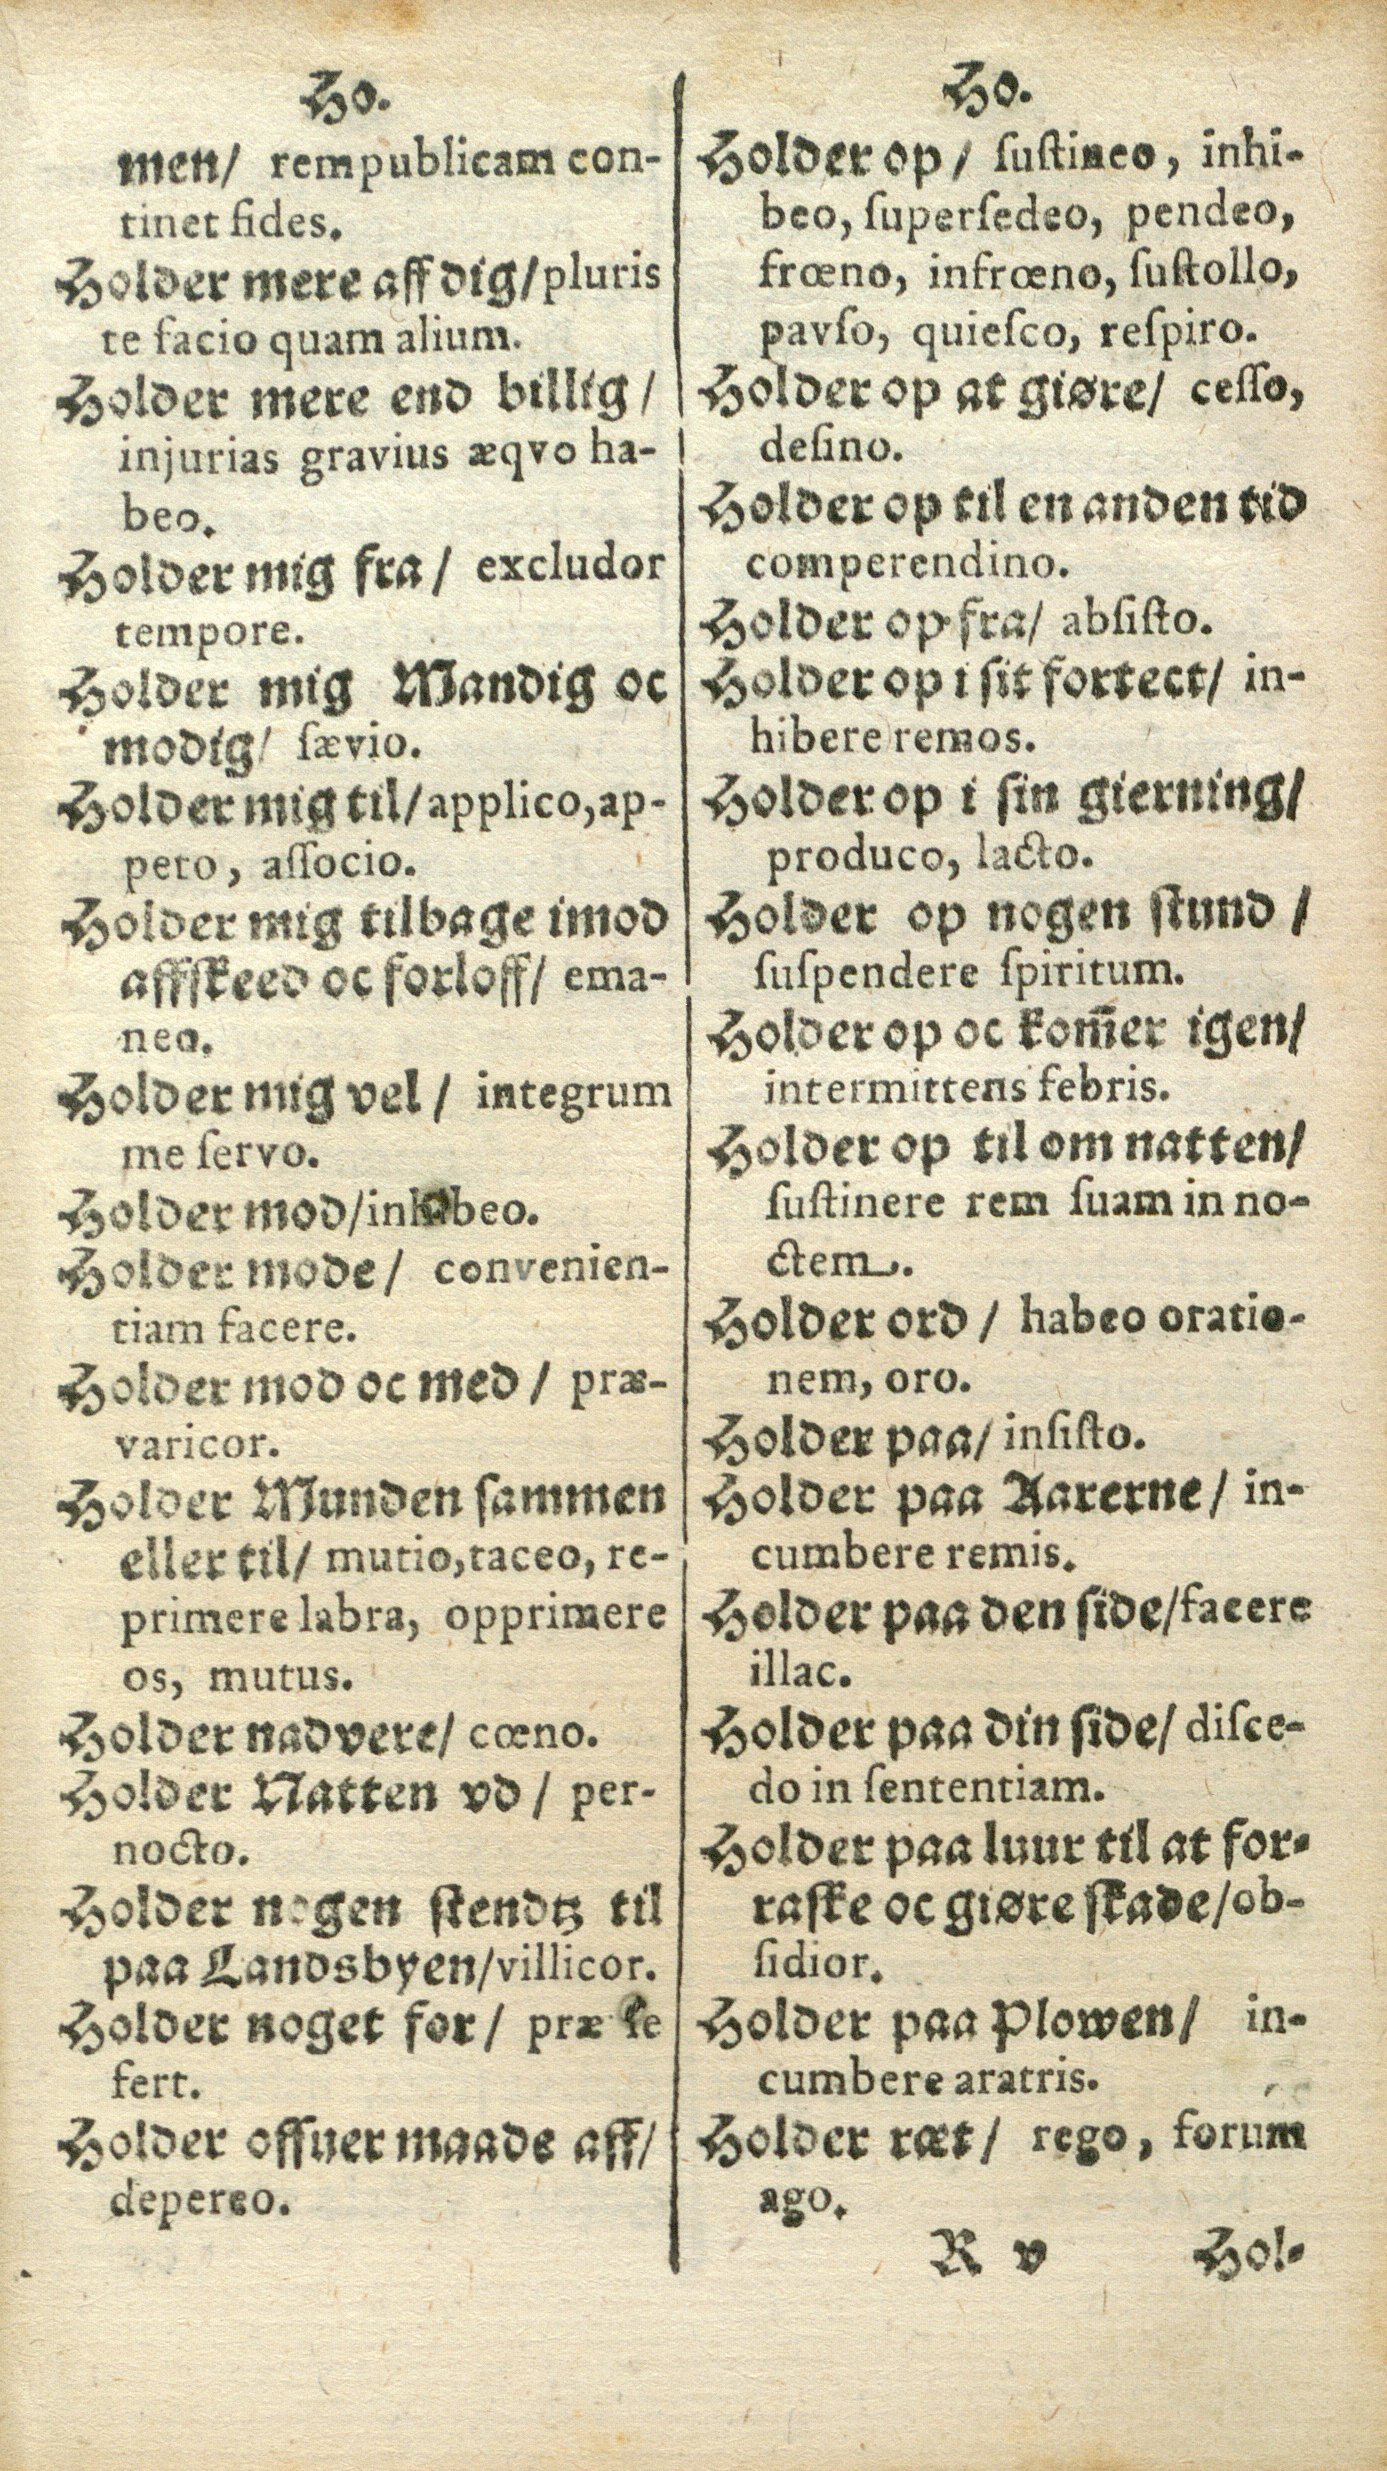 Ho.
men/ rempublicam con-
tinet fides.
Holder mere aff dig/pluris
te facio quam alium.
Holder mere end billig/
injurias gravius æqvo ha-
beo.
Holder mig fra/ excludor
tempore.
Holder mig Mandig oc
modig/ ſævio.
Holder mig til/applico,ap-
peto, aſſocio.
Holder mig tilbage imod
affſkeed oc forloff/ ema-
neo.
Holder mig vel/ integrum
me ſervo.
Holder mod/inhibeo.
Holder mode/ convenien-
tiam facere.
Holder mod oc med/ præ-
varicor.
Holder Munden ſammen
eller til/ mutio,taceo, re-
primere labra, opprimere
os, mutus.
Holder nadvere/ cœno.
Holder Natten vd/ per-
nocto.
Holder nogen ſtendtz til
paa Landsbyen/villicor.
Holder noget for/ præ ſe
fert.
Holder offuer maade aff/
depereo.
Ho.
Holder op/ ſuſtineo, inhi-
beo, ſuperſedeo, pendeo,
frœno, infrœno, ſuſtollo,
pavſo, quieſco, reſpiro.
Holder op at giøre/ ceſſo,
deſino.
Holder op til en anden tid
comperendino.
Holder op fra/ abſiſto.
Holder op i ſit fortect/ in-
hibere remos.
Holder op i ſin gierning/
produco, lacto.
Holder op nogen ſtund/
ſuſpendere ſpiritum.
Holder op oc kom̅er igen/
intermittens febris.
Holder op til om natten/
ſuſtinere rem ſuam in no-
ctem.
Holder ord/ habeo oratio-
nem, oro.
Holder paa/ inſiſto.
Holder paa Aarerne/ in-
cumbere remis.
Holder paa den ſide/facere
illac.
Holder paa din ſide/ diſce-
do in ſententiam.
Holder paa luur til at for-
raſke oc giøre ſkade/ob-
ſidior.
Holder paa Plowen/ in-
cumbere aratris.
Holder ræt/ rego, forum
ago.
R v Hol-